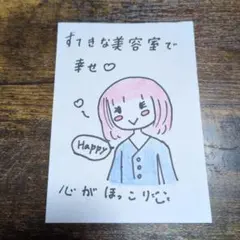 すてきな美容室で
幸せ♡
Happy
心がほっこり